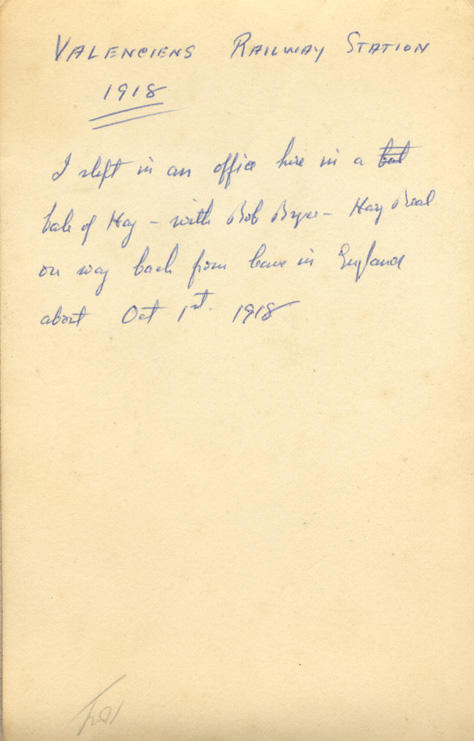 VALENCIENS RAILWAY STATION
1918
I slept in an office here in a
bale of Hay - with Bob Byrse - Hay Beal
on way back from leave in England
about Oct 1st. 1918